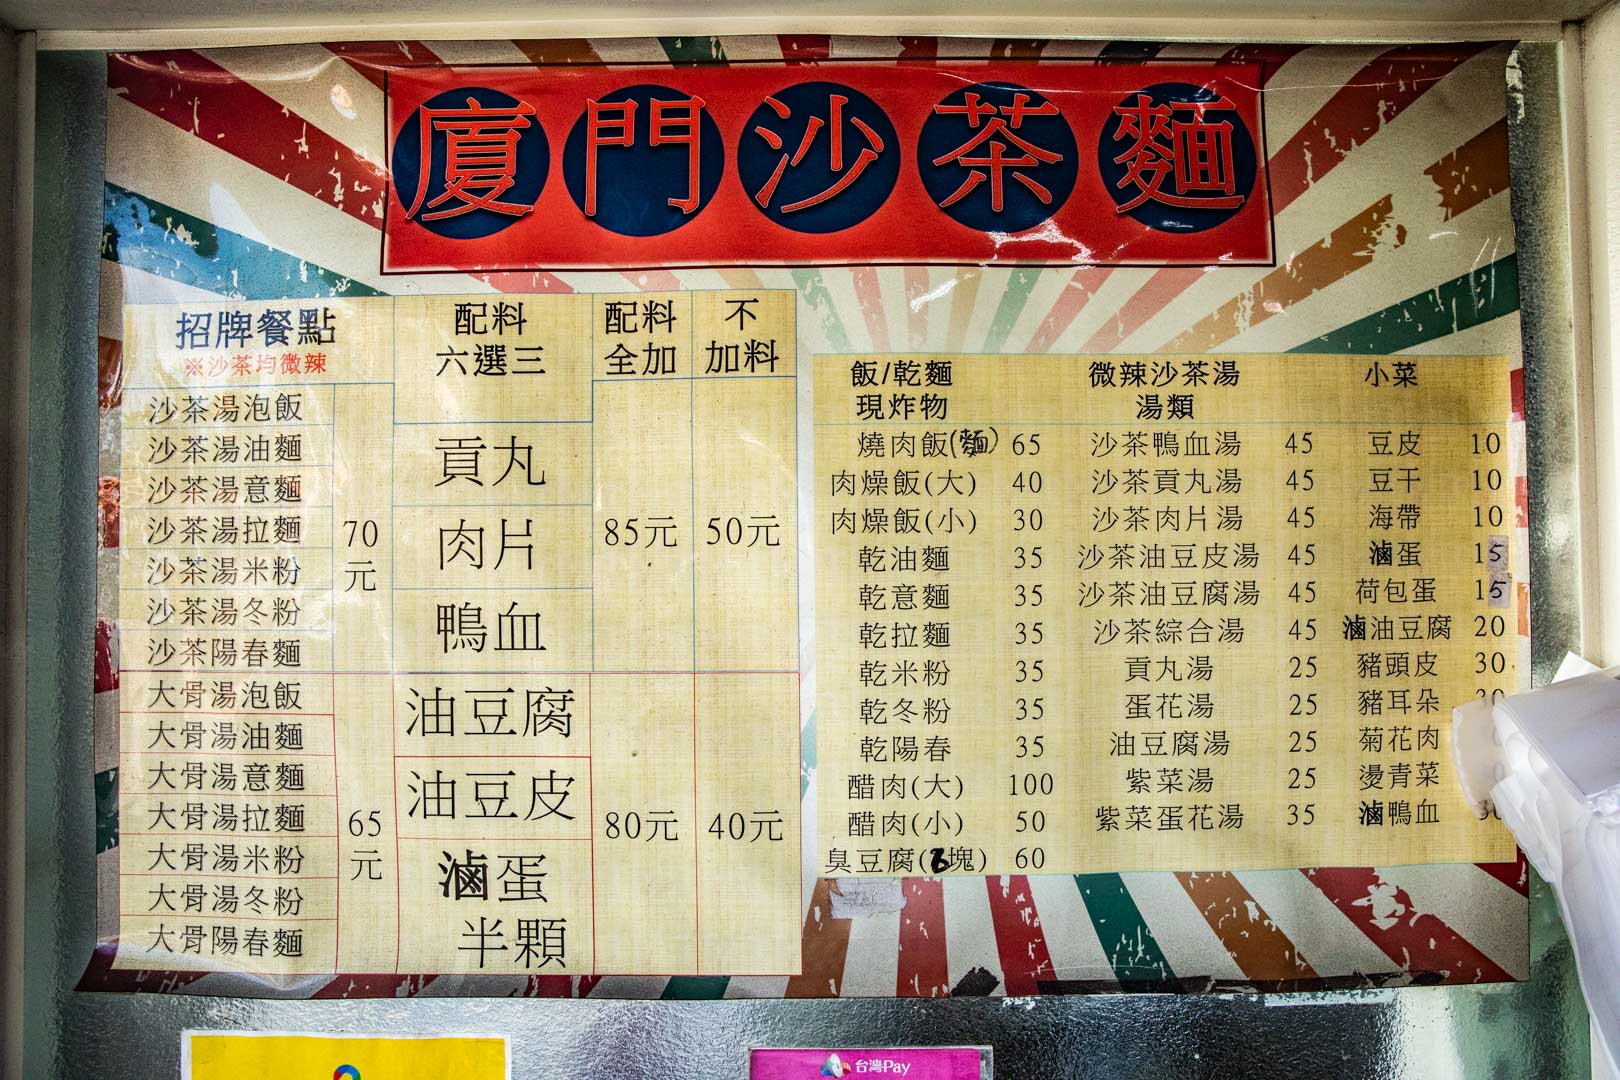 廈門沙茶麵
招牌餐點
※沙茶均微辣
配料
六選三
配料
全加
不
加料
沙茶湯泡飯
沙茶湯油麵
沙茶湯意麵
沙茶湯拉麵
沙茶湯米粉
沙茶湯冬粉
沙茶陽春麵
70
元
大骨湯泡飯
大骨湯油麵
大骨湯意麵
大骨湯拉麵
大骨湯米粉
大骨湯冬粉
大骨陽春麵
65
元
貢丸
肉片
鴨血
油豆腐
油豆皮
滷蛋
半顆
85元
50元
80元
40元
飯/乾麵
現炸物
燒肉飯(麵) 65
肉燥飯(大) 40
肉燥飯(小) 30
乾油麵 35
乾意麵 35
乾拉麵 35
乾米粉 35
乾冬粉 35
乾陽春 35
醋肉(大) 100
醋肉(小) 50
臭豆腐(塊) 60
微辣沙茶湯
湯類
沙茶鴨血湯 45
沙茶貢丸湯 45
沙茶肉片湯 45
沙茶油豆皮湯 45
沙茶油豆腐湯 45
沙茶綜合湯 45
貢丸湯 25
蛋花湯 25
油豆腐湯 25
紫菜湯 25
紫菜蛋花湯 35
小菜
豆皮 10
豆干 10
海帶 10
滷蛋 15
荷包蛋 15
滷油豆腐 20
豬頭皮 30
豬耳朵 30
菊花肉
燙青菜
滷鴨血
台灣Pay